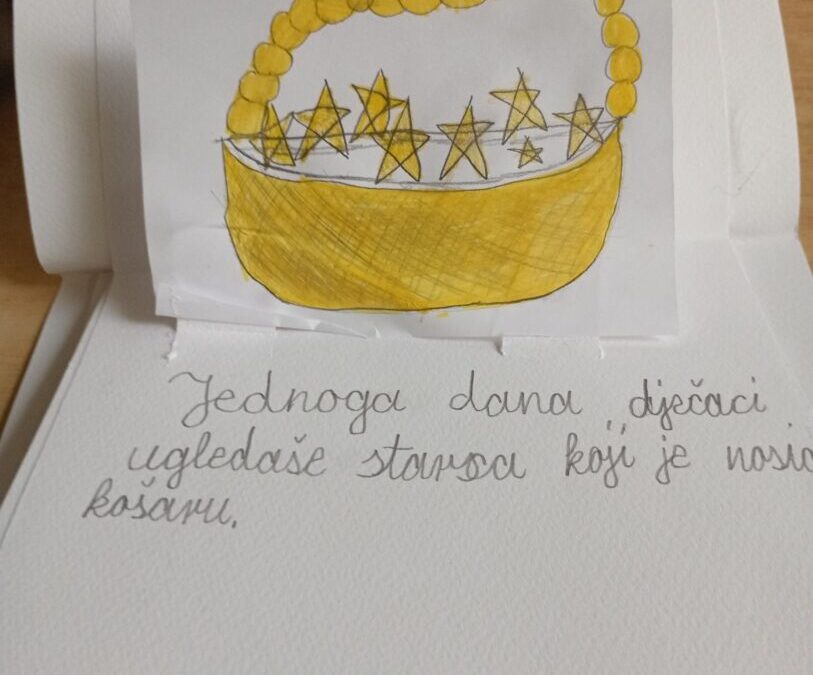 Jednoga dana dječaci
ugledaše starca koji je nosio
košaru.